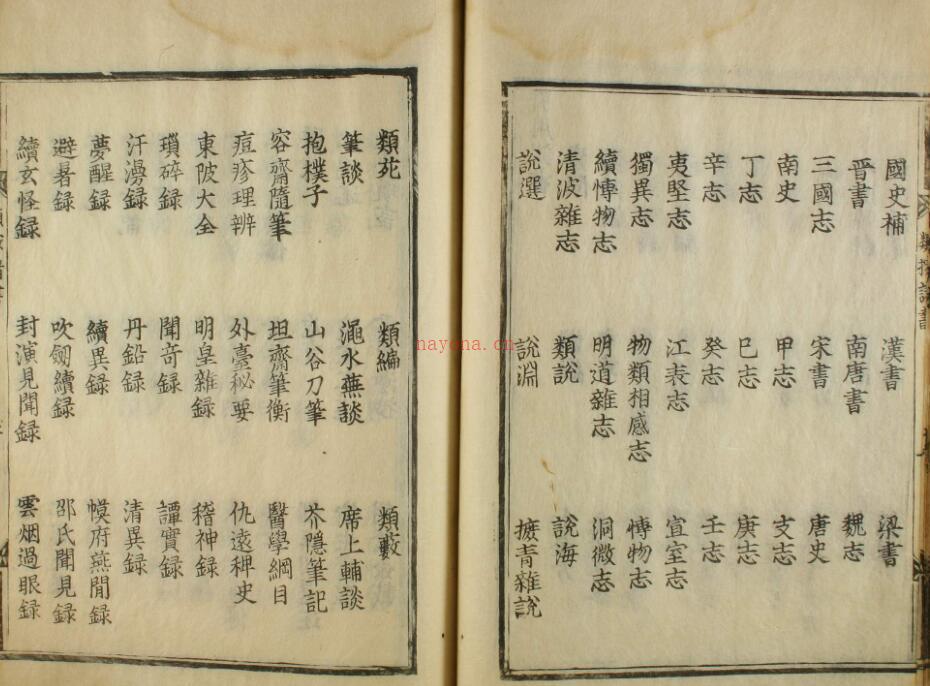 國史補 漢書 梁書
晋書 南唐書 魏志
三國志 宋書 唐史
南史 甲志 支志
丁志 巳志 庚志
辛志 癸志 壬志
夷堅志 江表志 宣室志
獨異志 物類相感志 博物志
續博物志 明道雜志 洞微志
清波雜志 類說 說海
說選 說淵 摭青雜說
類苑 類編 類藪
筆談 澠水燕談 席上輔談
抱樸子 山谷刀筆 芥隱筆記
容齋隨筆 坦齋筆衡 醫學綱目
痘疹理辨 外臺秘要 仇遠稗史
東陂大全 明皇雜録 稽神録
瑣碎録 聞竒録 譚實録
汗漫録 丹鉛録 清異録
夢醒録 續異録 幙府燕閒録
避暑録 吹劒續録 邵氏聞見録
續玄怪録 封演見聞録 雲烟過眼録
nayona.cn